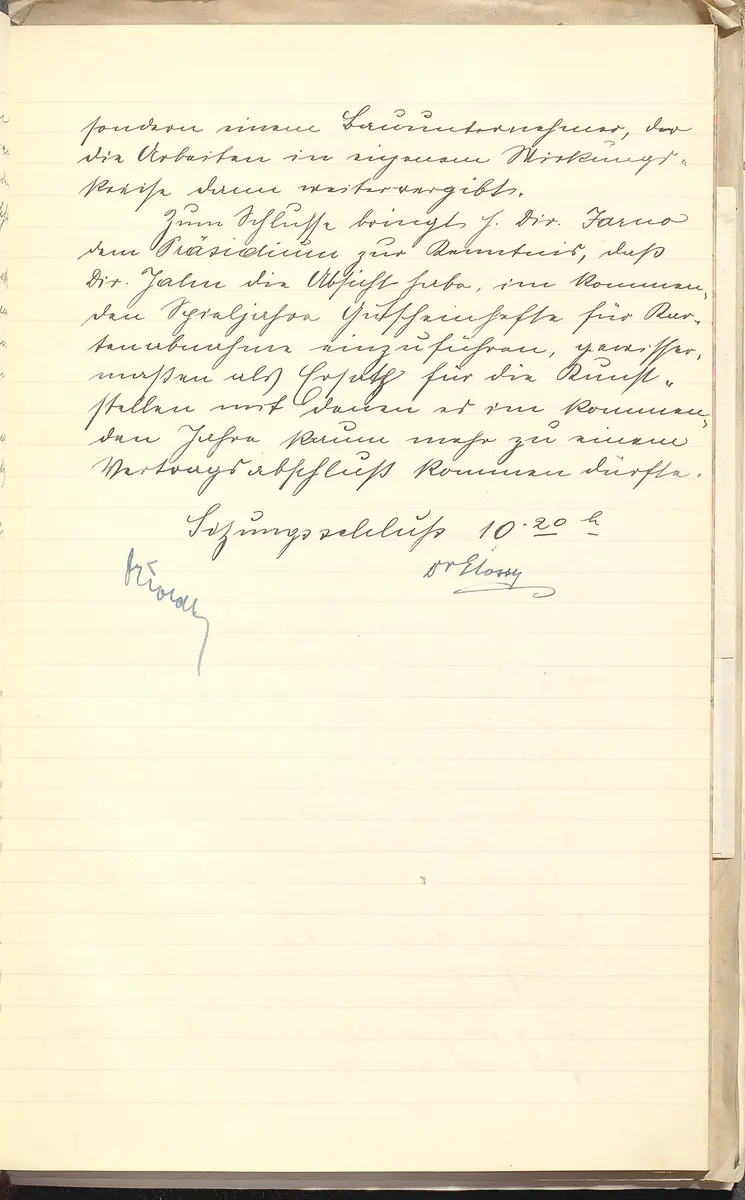 sondern einem Bauunternehmer, der
die Arbeiten in eigenem Wirkungs-
kreise dann weitervergibt.
Zum Schlusse bringt H. Dir. Jarno
dem Präsidium zur Kenntnis, daß
Dir. Jahn die Absicht habe, im kommen-
den Spieljahre Gutscheinhefte für Kar-
tenabnahme einzuführen, gewisser-
maßen als Ersatz für die Kunst-
stellen mit denen es im kommen-
den Jahre kaum mehr zu einem
Vertragsabschluß kommen dürfte.
Sitzungsschluß 10.20 h
Dr Glossy